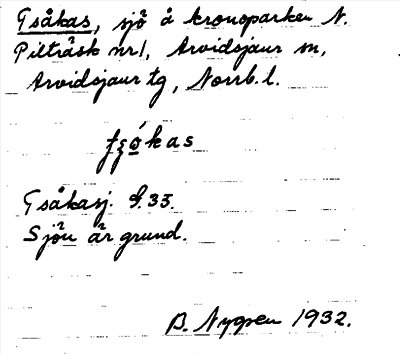 Tsåkas, sjö å kronoparken N.
Pilträsk nr 1, Arvidsjaur sn,
Arvidsjaur tg, Norrb. l.
kas
Tsåkasj. G.33.
Sjön är grund.
B. Nygren 1932.